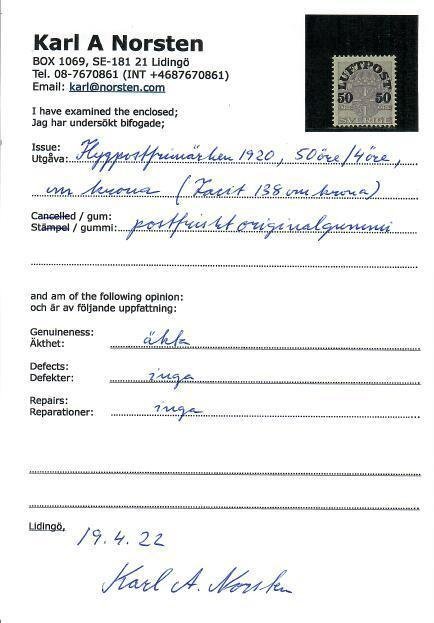 Karl A Norsten
BOX 1069, SE-181 21 Lidingö
Tel. 08-7670861 (INT +4687670861)
Email: karl@norsten.com
LUFTPOST
50 50
SVERIGE
I have examined the enclosed;
Jag har undersökt bifogade;
Issue:
Utgåva: Flygpostfrimärken 1920, 50 öre/4 öre,
vm krona (Facit 138 vm krona)
Cancelled / gum:
Stämpel / gummi: postfriskt originalgummi
and am of the following opinion:
och är av följande uppfattning:
Genuineness:
Äkthet: äkta
Defects:
Defekter: inga
Repairs:
Reparationer: inga
Lidingö,
19.4.22
Karl A. Norsten